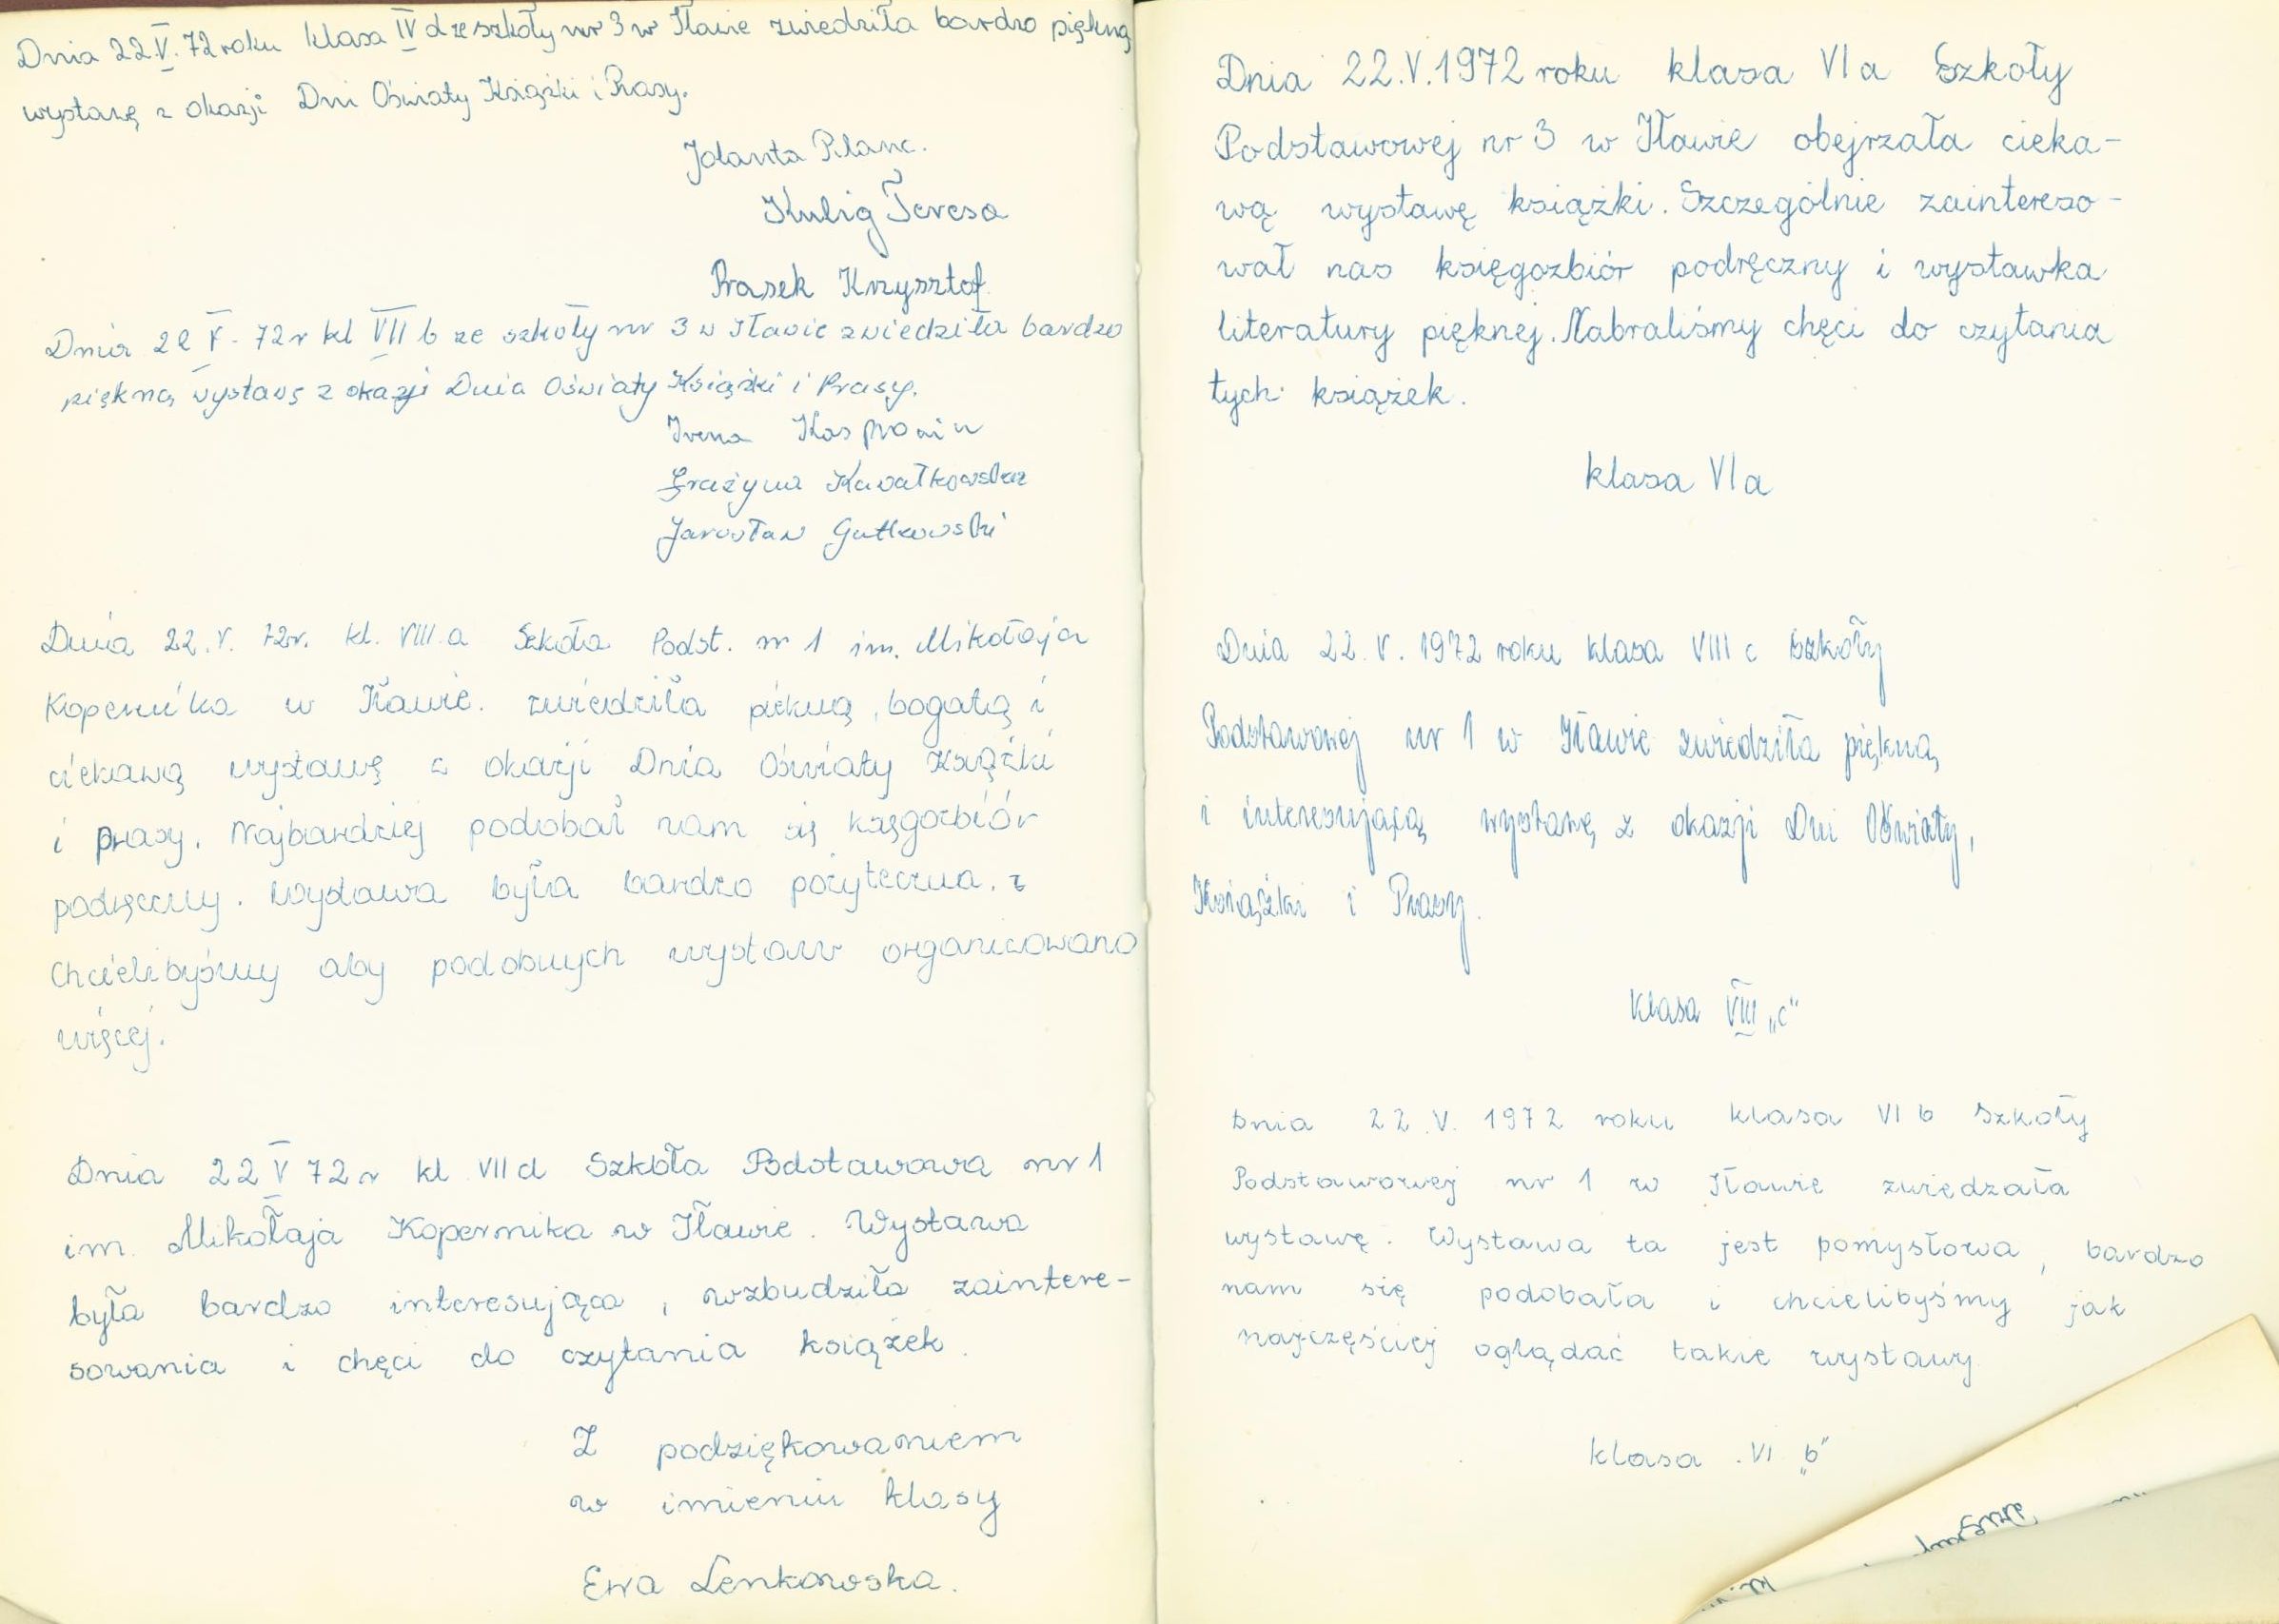 Dnia 22.V.72 roku klasa IV d ze szkoły nr 3 w Iławie zwiedziła bardzo piękną
wystawę z okazji Dni Oświaty Książki i Prasy.
Jolanta
Kulig Teresa
Prasek Krzysztof
Dnia 22 V - 72 r kl VII b ze szkoły nr 3 w Iławie zwiedziła bardzo
piękną wystawę z okazji Dnia Oświaty Książki i Prasy.
Irena
Grażyna Kawałkowska
Jarosław Gutkowski
Dnia 22.V. 72r. kl. VIII.a Szkoła Podst. nr 1 im. Mikołaja
Kopernika w Iławie. zwiedziła piekną, bogatą i
ciekawą wystawę z okazji Dnia Oświaty Książki
i prasy. Najbardziej podobał nam się księgozbiór
podręczny. Wystawa była bardzo pożyteczna.
Chcielibyśmy aby podobnych wystaw organizowano
więcej.
Dnia 22 V 72 r kl VII d Szkoła Podstawowa nr 1
im. Mikołaja Kopernika w Iławie. Wystawa
była bardzo interesująca, wzbudziła zaintere-
sowania i chęci do czytania książek.
Z podziękowaniem
w imieniu klasy
Ewa Lenkowska.
Dnia 22.V.1972 roku klasa VI a Szkoły
Podstawowej nr 3 w Iławie obejrzała cieka-
wą wystawę książki. Szczególnie zaintereso-
wał nas księgozbiór podręczny i wystawka
literatury pięknej. Nabraliśmy chęci do czytania
tych książek.
klasa VI a
Dnia 22.V.1972 roku klasa VIII c Szkoły
Podstawowej nr 1 w Iławie zwiedziła piękną
i interesującą wystawę z okazji Dni Oświaty,
Książki i Prasy.
Klasa VIII „c"
Dnia 22.V. 1972 roku klasa VI b Szkoły
Podstawowej nr 1 w Iławie zwiedzała
wystawę. Wystawa ta jest pomysłowa, bardzo
nam się podobała i chcielibyśmy jak
najczęściej oglądać takie wystawy
klasa VI „b"